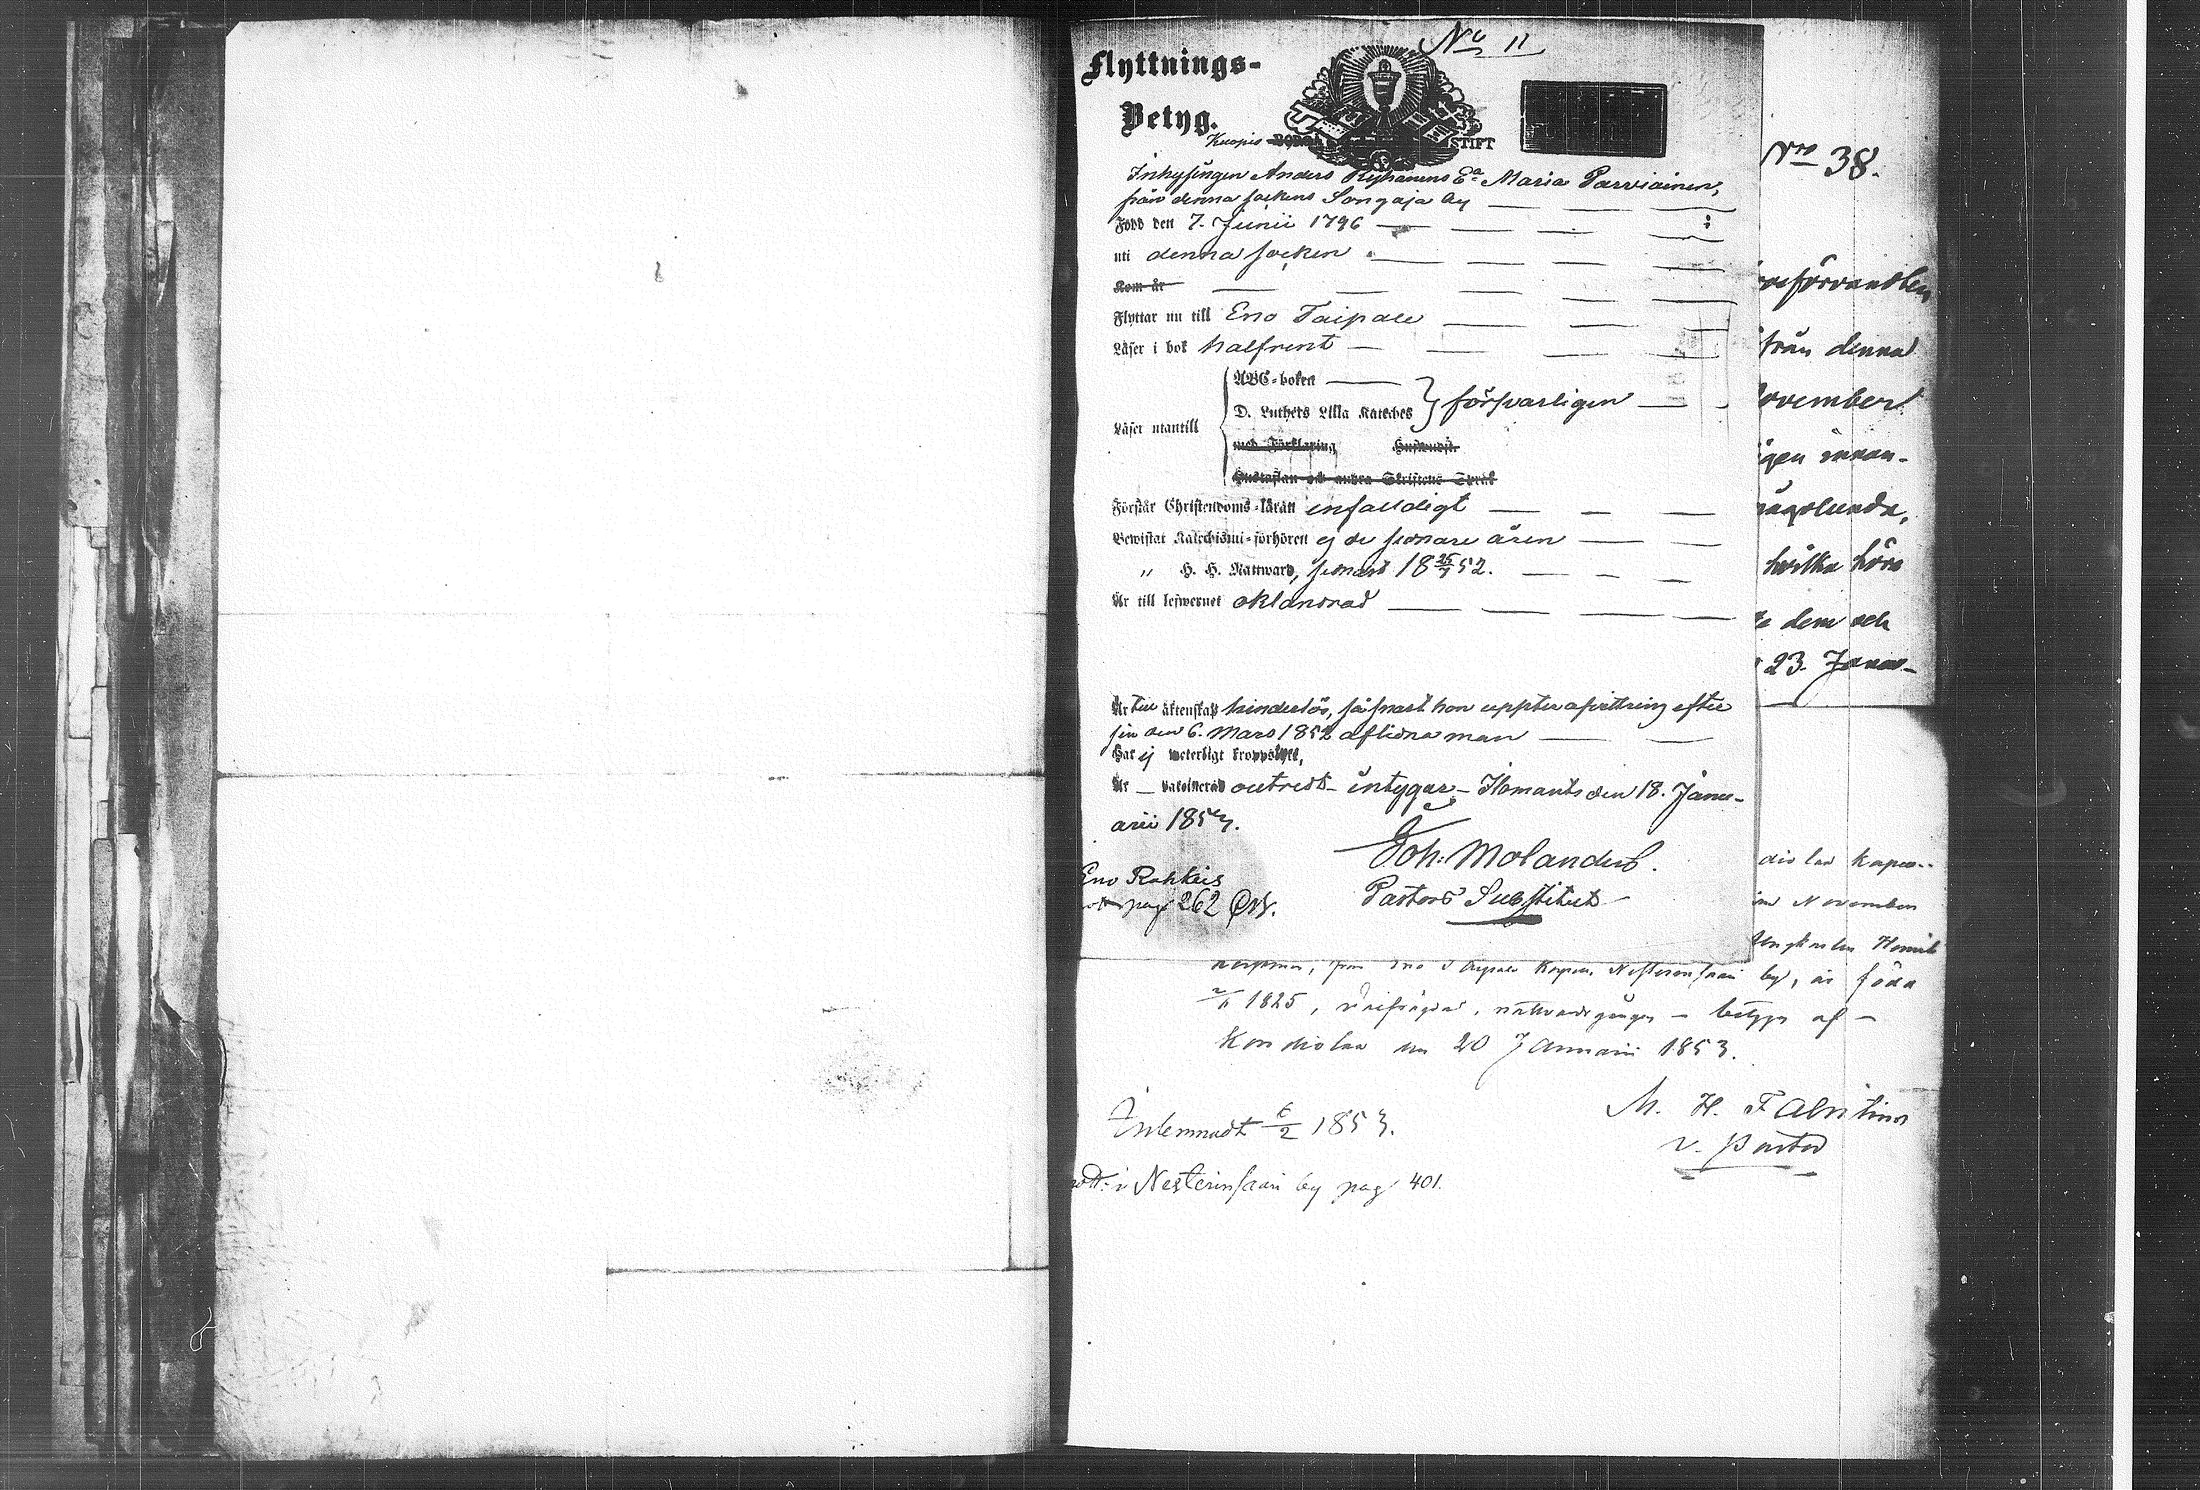 No 11
Flyttnings-
Betyg.
Kuopio BORGÅ STIFT
Inhysingen Anders Ryhänens Ea Maria Parviainen,
från denna sockens Sonkaja by
Född den 7. Junii 1796
uti denna socken
Kom år
Flyttar nu till Eno Taipale
Läser i bok halfrent
Läser utantill
ABC-boken
D. Luthers Lilla Kateches försvarligen
med Förklaring Husspråk
Hustaflan och andra Skriftens Språk
Förstår Christendoms-läran enfaldigt
Bewistat Katechismi-förhören ej de sednare åren
" H. H. Nattward, sednast 18 25/7 52.
Är till lefwernet oklandrad
Är till äktenskap hinderlös, så snart hon uppter afvittring efter
sin den 6. Mars 1852 aflidna man
Har ej weterligt kroppslyte,
Är — vaccinerad outredt — intygar — Ilomants den 18. Janu-
arii 1853.
Joh: Molander
Pastors Substitut
Eno Rahkeis
pag 262
Nro 38.
från denna
November
innan-
hvilka höra
dem och
23. Janua-
November
by, är född
1825, nattvardsgången — betygar af —
Kondiolax den 20 Januarii 1853.
M. H. Fabritius
v. Pastor
Inlemnadt 6/2 1853.
Nesterinsaari by pag 401.